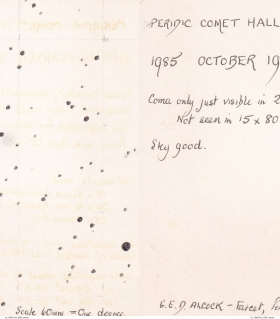 PERIDIC COMET HALL
1985 OCTOBER 19
Coma only just visible in 2
Not seen in 15 x 80
Sky good.
Scale 60mm = One degree
G.E.D. ALCOCK - Farcet, Pe